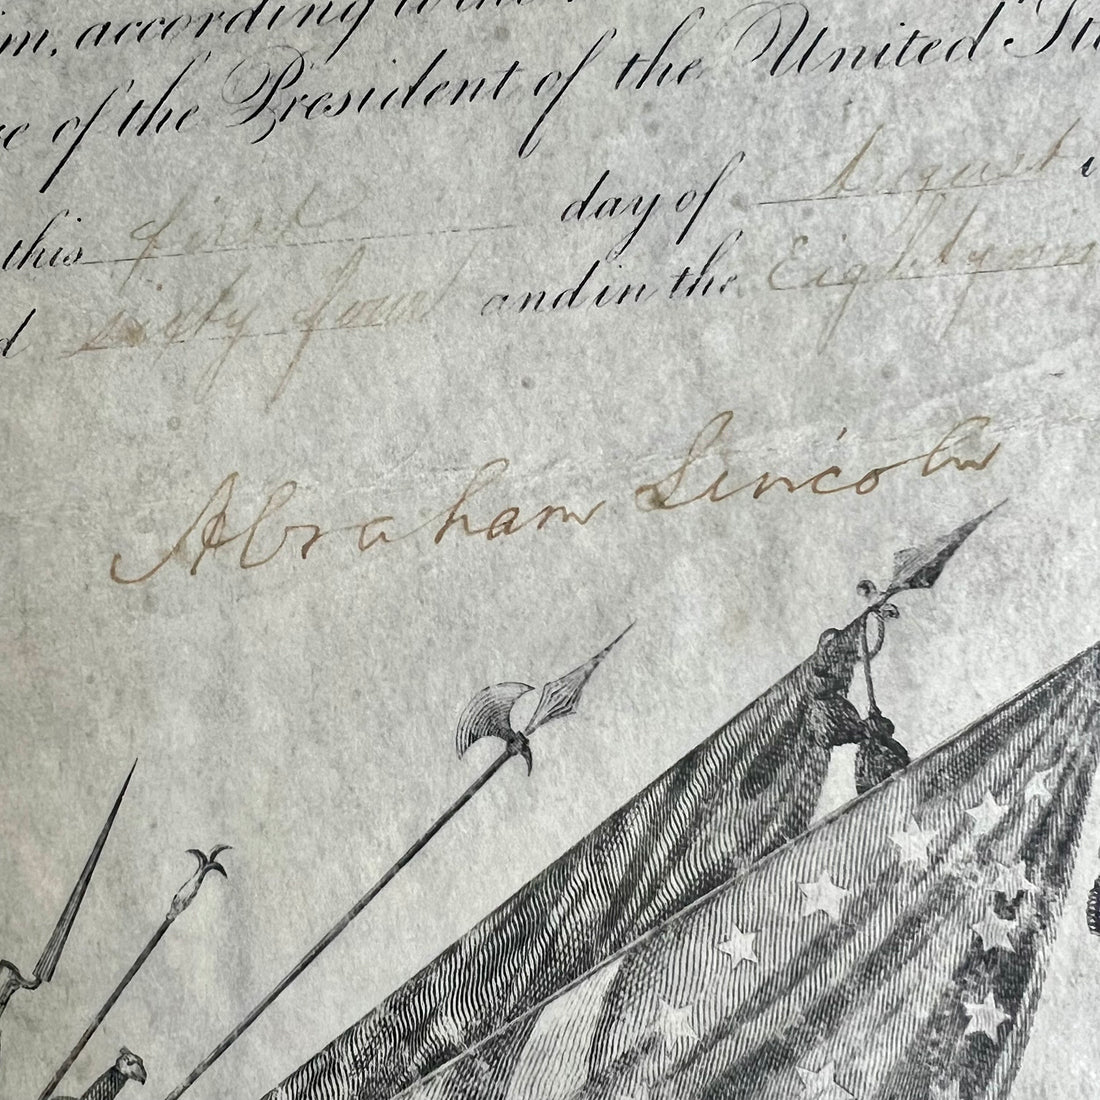 im, according to the
re of the President of the United Sta
this first day of August i
d sixty four and in the Eightynin
Abraham Lincoln